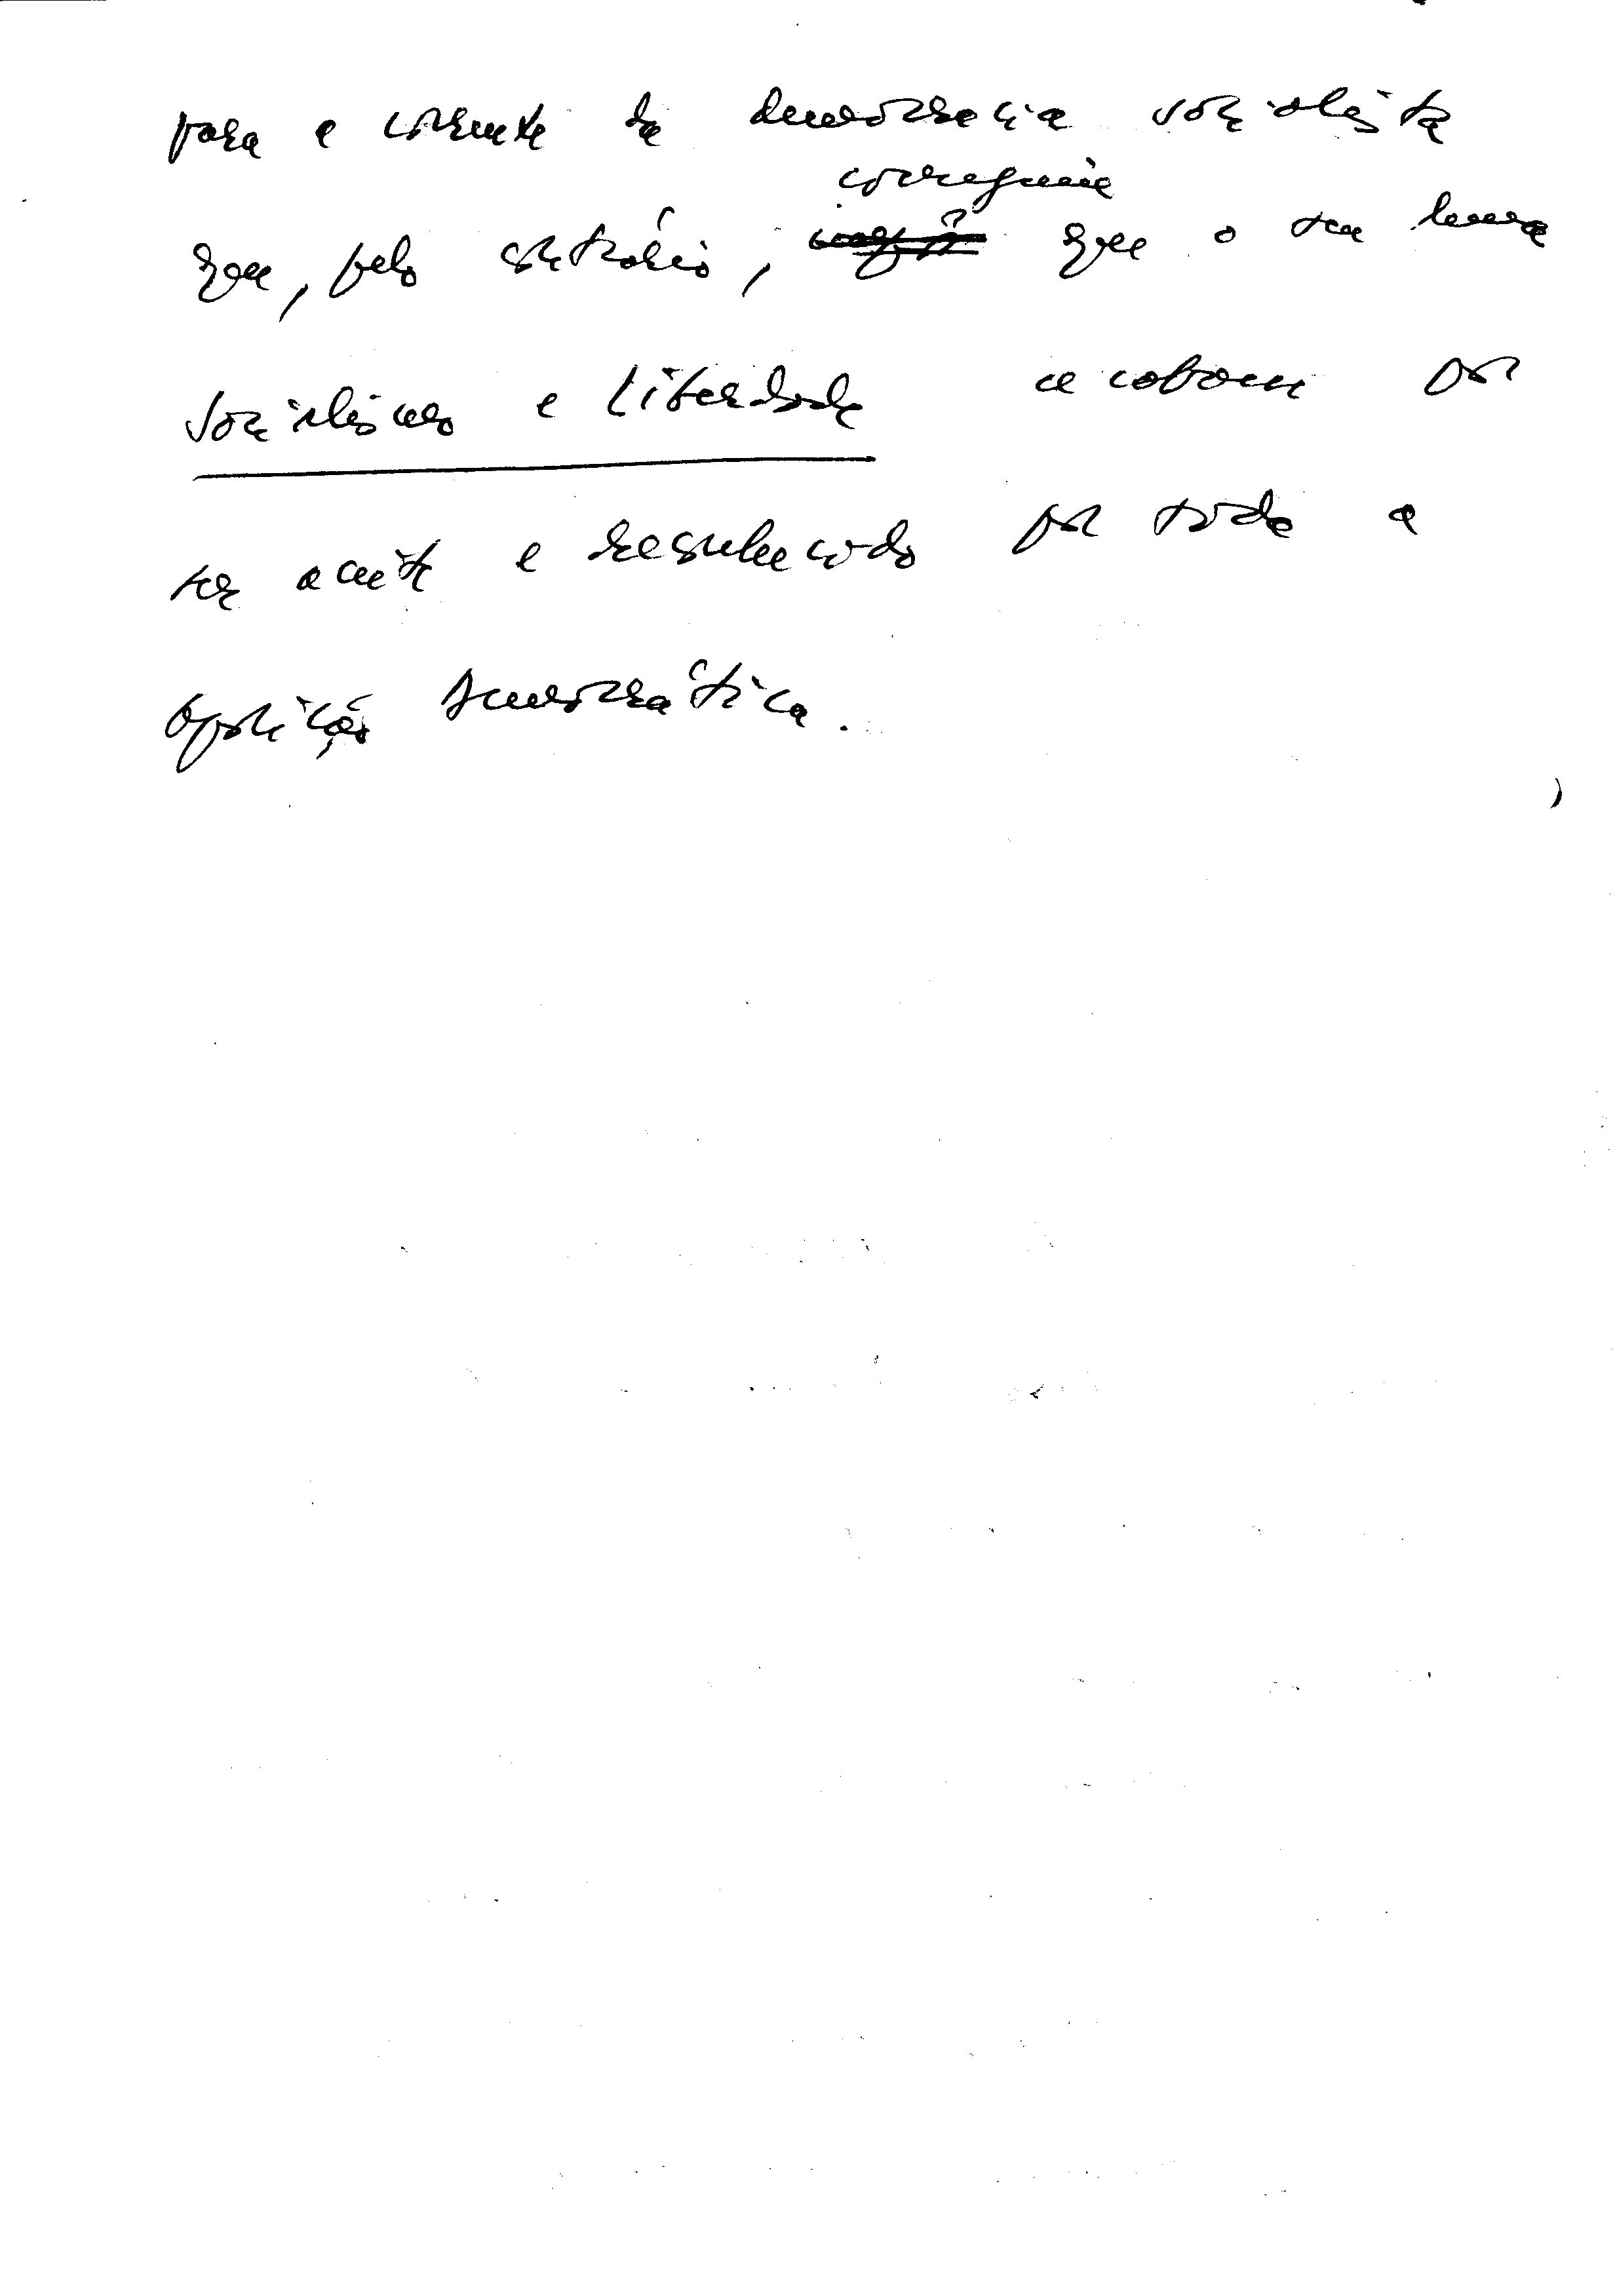 para a corrente da democracia socialista
conseguiu
que, pelo contrário, que o seu lema
Socialismo e Liberdade acabou por
ser aceite e reconhecido por toda a
Oposição Democrática.